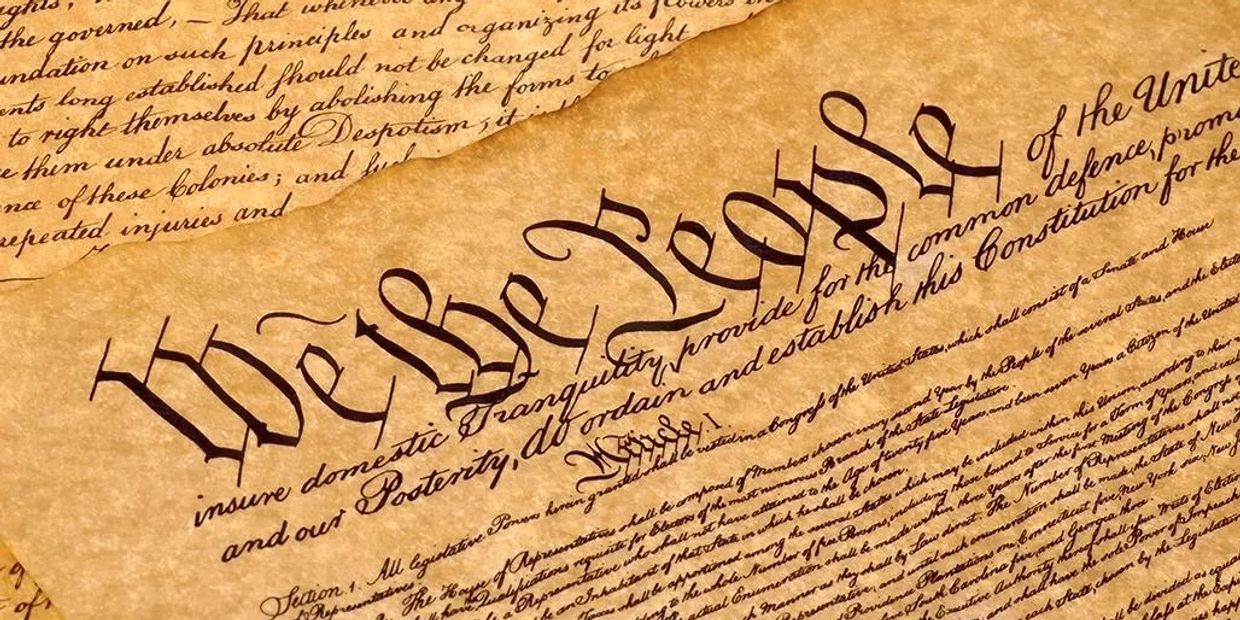 the governed, — That whenever any
undation on such principles and organizing its powers in
ents long established should not be changed for light
to right themselves by abolishing the forms to
them under absolute Despotism, it is th
nce of these Colonies; and such
repeated injuries and
We the People of the Unite
insure domestic Tranquility, provide for the common defence, promo
and our Posterity, do ordain and establish this Constitution for the
Article I
Section 1. All legislative Powers herein granted shall be vested in a Congress of the United States, which shall consist of a Senate and House
of Representatives.
The House of Representatives shall be composed of Members chosen every second Year by the People of the several States, and the Electo
shall have Qualifications requisite for Electors of the most numerous Branch of the State Legislature.
Representative who shall not have attained to the Age of twenty five Years, and been seven Years a Citizen of the United
be an Inhabitant of that State in which he shall be chosen.
Taxes shall be apportioned among the several States which may be included within this Union, according to their
to the whole Number of free Persons, including those bound to Service for a Term of Years, and
actual Enumeration shall be made within three Years after the first Meeting of the Congress of
Manner as they shall by Law direct. The Number of Representatives shall not
Representative; and until such enumeration shall be made, the State of New
and Providence Plantations one, Connecticut five, New York six, New J
South Carolina five, and Georgia three.
Executive Authority thereof shall issue Writs of Electio
and shall have the sole Power of Impeach
each State, chosen by the Legislatu